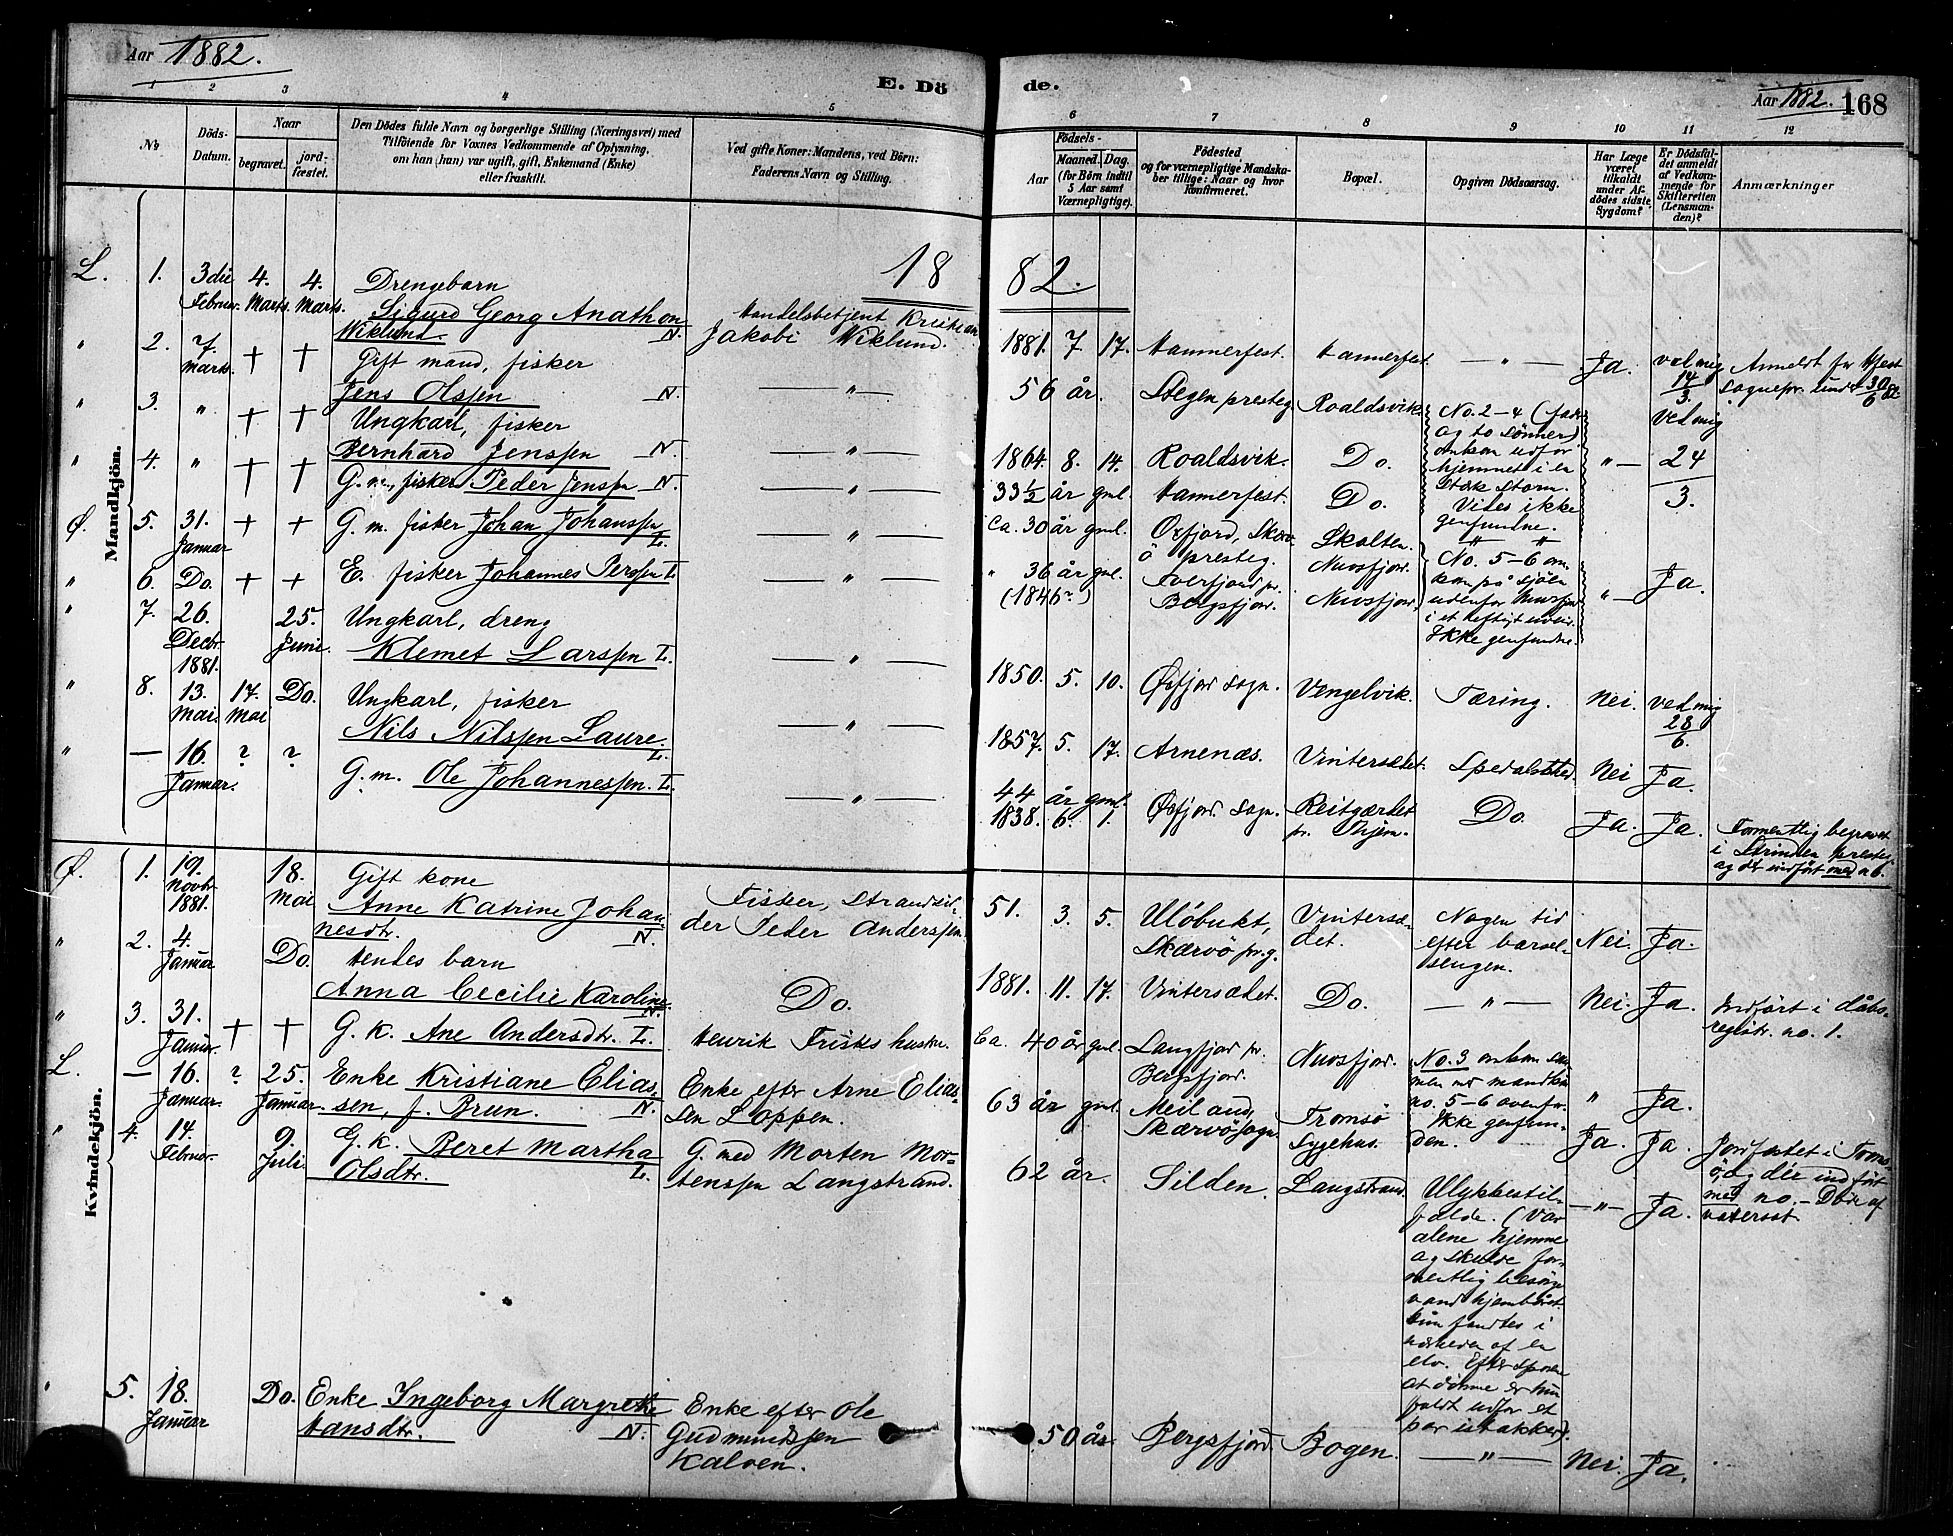 Aar 1882.
E. Dö
de.
Aar 1882. 168
1 2 3 4 5
6 7 8 9 10 11 12
No
Döds-
Datum.
Naar
begravet.
jord-
fæstet.
Den Dödes fulde Navn og borgerlige Stilling (Næringsvei) med
Tilföiende for Voxnes Vedkommende af Oplysning,
om han (hun) var ugift, gift, Enkemand (Enke)
eller fraskilt.
Ved gifte Koner: Mandens, ved Börn:
Faderens Navn og Stilling.
Födsels-
Aar
Maaned. Dag.
(for Börn indtil
5 Aar samt
Værnepligtige).
Födested
og for værnepligtige Mandska-
ber tillige: Naar og hvor
Konfirmeret.
Bopæl.
Opgiven Dödsaarsag.
Har Læge
været
tilkaldt
under Af-
dödes sidste
Sygdom?
Er Dödsfal-
det anmeldt
af Vedkom-
mende for
Skifteretten
(Lensman-
den)?
Anmærkninger
18
82.
Mandkjön.
L. 1. 3die Februar. 4. Marts. 4. Marts. Drengebarn
Sigurd Georg Anathon
Wiklund. N.
Handelsbetjent Kristian
Jakobi Wiklund.
1881. 7 17. Hammerfest. Hammerfest. — " — Ja. ved mig 14/3. Anmeldt for Hfest
sognepr. under 30/6 82
" 2. 7. Marts. + + Gift mand, fisker
Jens Olssen N. — " —
56 år. Stegen presteg. Roaldsvik.
No. 2-4 (fader
og to sönner)
omkom udfor
hjemmet i en
stærk storm.
Vides ikke
genfundne.
" — ved mig 24/3.
" 3. " + + Ungkarl, fisker
Bernhard Jenssen N. — " —
1864. 8. 14. Roaldsvik. Do.
" 4. " + + G. m., fisker Peder Jenssen N. — " —
33 1/2 år gml. Hammerfest. Do.
Ø. 5. 31. Januar + + G. m. fisker Johan Johanssen L. — " —
Ca. 30 år gml. Oxfjord, Skærv-
ö presteg. Skalten.
Nuvsfjord.
No. 5-6 om-
kom på sjöen
udenfor Nuvsfjord
i et heftigt uveir.
Ikke genfundne.
" — Ja.
" 6. Do. + + E. fisker Johannes Perssen L. — " —
" 36 år gml.
(1846?) Tverfjord pr.
Bergsfjord. Nuvsfjord.
" 7. 26. Decbr. 1881. 25. Juni. Ungkarl, dreng
Klemet Larssen L. — " —
1850. 5. 10. Øxfjord sogn. Vengelvik. Tæring. Nei. ved mig 28/6.
" 8. 13. Mai. 17. Mai Do. Ungkarl, fisker
Nils Nilssen Laure. L. — " —
1857. 5. 17. Arnenæs. Vintersætet. Spedalskhed. Nei Ja.
" — 16. Januar. ? ? G. m. Ole Johannessen. L. — " —
44 år gml.
1838. 6. 1. Øxfjord sogn. Reitgærdet
pr. Thjem. Do. Ja. Ja. Formentlig begravet
i Strinden presteg.
og dér indfört med no.
Kvindekjön.
Ø. 1. 19. Novbr. 1881. 18. Mai Gift kone
Anne Katrine Johan-
nesdtr. N.
Fisker, strandsid-
der Peder Anderssen.
51. 3. 5. Ulöbukt,
Skærvö prg. Vintersæ-
det. Nogen tid
efter barsel-
sengen. Nei. Ja.
" 2. 4. Januar Do. Hendes barn
Anna Cecilie Karoline. N. Do.
1881. 11. 17. Vintersætet. Do. — " — Nei. Ja. Indfört i dåbs-
registr. no. 1.
" 3. 31. Januar. + + G. k. Ane Andersdtr. L. Henrik Frisks hustru.
Ca. 40 år gml. Langfjord pr.
Bergsfjord. Nuvsfjord. No. 3 omkom sam-
men med mandkjön
no. 5-6 ovenfor.
Ikke genfun-
den. " Ja.
L. — 16. Januar. ? 25. Januar. Enke Kristiane Elias-
sen, f. Brun. N.
Enke efter Arne Elias-
sen Loppen.
63 år gml. Meiland,
Skærvö sogn. Tromsö
Sygehus. Ja. Ja. Jordfæstet i Troms-
ö, og dér indfört
med no. — Döde af
vatersot.
" 4. 14. Februar. 9. Juli G. k. Beret Martha
Olsdtr. L.
G. med Morten Mor-
tenssen Langstrand.
62 år. Silden. Langstrand. Ulykkestil-
fælde. (Var
alene hjemme
og skulde for-
mentlig besörge
vand hjembåret.
Hun fandtes i
nærheden af en
elv. Efter sporene
at dömme er hun
faldt udfor et
par stakker). — " — Ja.
" 5. 18. Januar Do. Enke Ingeborg Margrethe
Hansdtr. N.
Enke efter Ole
Gudmundssen
Kalven.
50 år. Bergsfjord. Bogen. — " — Nei. Ja.